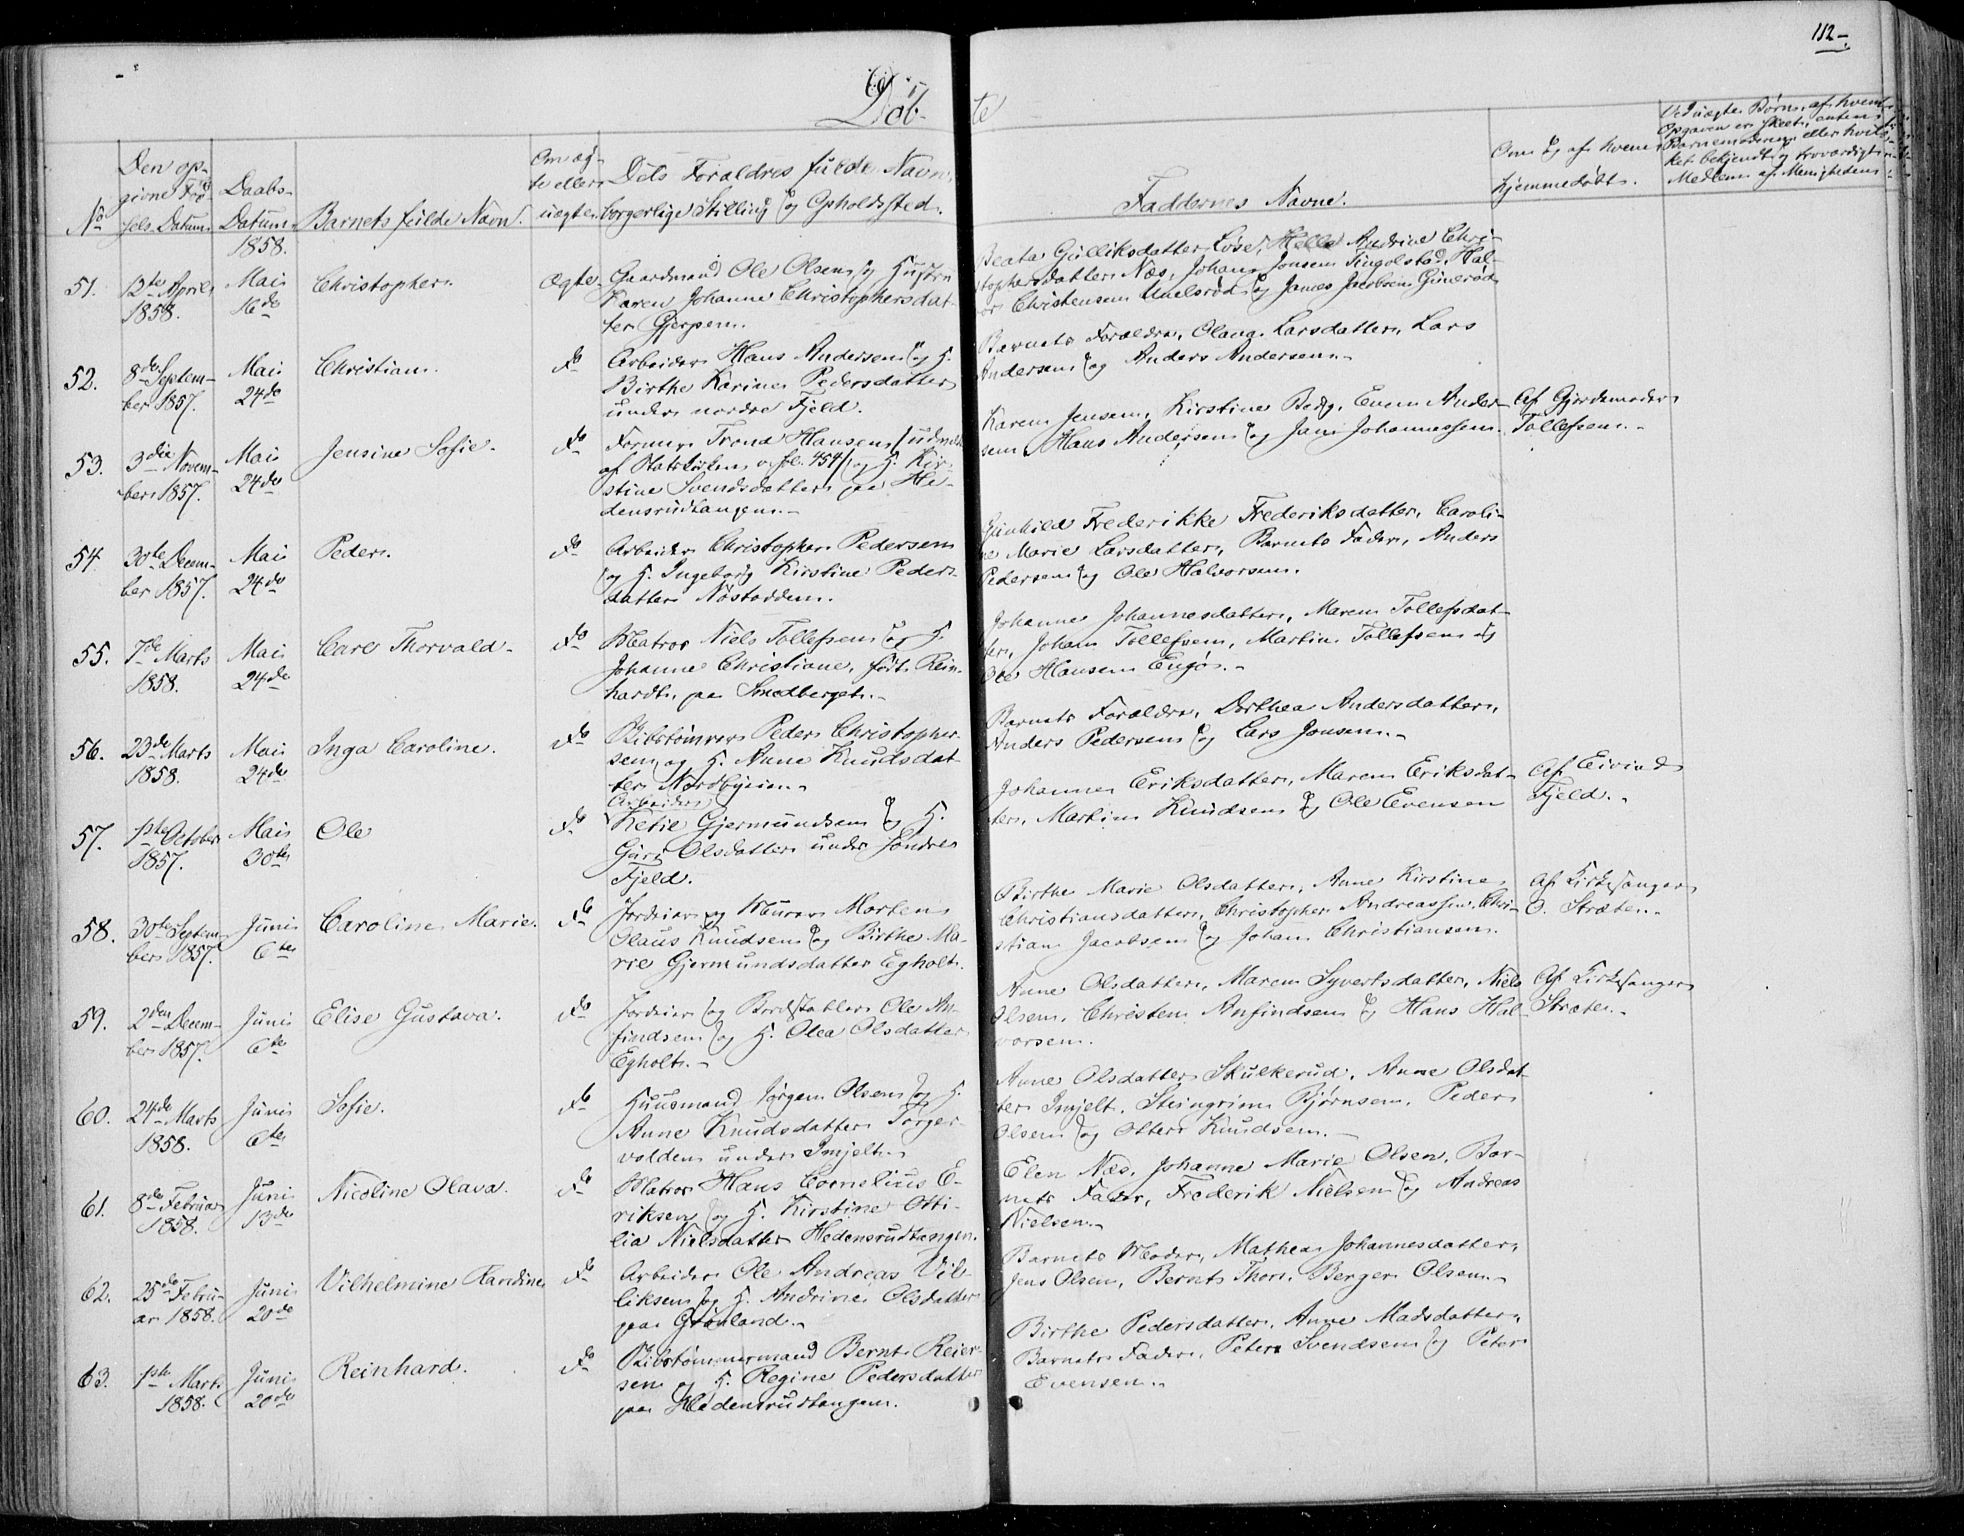 112-
Døb-
te
No
Den op-
givne Fød-
sels Datum
Daabs-
Datum
1858.
Barnets fulde Navn.
Om æg-
te eller
uægte
Dets Forældres fulde Navn,
borgerlige Stilling og Opholdssted.
Faddernes Navne.
Om og af hvem
hjemmedøbt.
Ved uægte Børn, af hvem
Opgaven er skeet, enten
Barnemoderen eller hvil-
ket bekjendt og troværdigt
Medlem af Menigheden
51.
12te April
1858.
Mai
16de
Christopher.
Ægte
Gaardmand Ole Olsen og Hustru
Karen Johanne Christophersdat-
ter Gjerpen.
Beata Gulliksdatter Løse, Helle Andrine Chri-
stophersdatter Næs, Johan Jonsen Tingolstad, Hal-
vor Christensen Unelsrød og James Jacobsen Gunerød
52.
8de Septem-
ber 1857.
Mai
24de
Christian.
do
Arbeider Hans Andersen og H.
Birthe Karine Pedersdatter
under nordre Fjeld.
Barnets Forældre, Olaug Larsdatter, Lars
Andersen og Anders Andersen.
53.
3die Novem-
ber 1857.
Mai
24de
Jensine Sofie.
do
Former Trond Hansen (udmeldt
af Statskirken v. fol. 454) og H. Kir-
stine Svendsdatter paa He-
densrudtangen.
Karen Jensen, Kirstine Bedy, Even Ander-
sen, Hans Andersen og Jens Johannessen.
Af Gjordemoder
Tollefsen.
54
30te Decem-
ber 1857.
Mai
24de
Peder.
do
Arbeider Christopher Pedersen
og H. Ingeborg Kirstine Peders-
datter Nøstodden.
Gunhild Frederikke Frederiksdatter, Caroli-
ne Marie Larsdatter, Barnets Fader, Anders
Pedersen og Ole Halvorsen.
55.
7de Marts
1858.
Mai
24de
Carl Thorvald.
do
Matros Niels Tollefsen og H.
Johanne Christiane, født Rein-
hardt, paa Smedberget.
Johanne Johannesdatter, Maren Tollefsdat-
ter, Johan Tollefsen, Martin Tollefsen og
Ole Hansen Engø.
56.
23de Marts
1858.
Mai
24de
Inga Caroline.
do
Skibstømrer Peder Christopher-
sen og H. Anne Knudsdat-
ter Nordbyeien.
Barnets Forældre, Dorthea Andersdatter,
Anders Pedersen og Lars Jonsen.
57.
1ste October
1857.
Mai
30te
Ole
do
Arbeider
Ketil Gjermundsen og H.
Guri Olsdatter under søndre
Fjeld.
Johanne Eriksdatter, Maren Eriksdat-
ter, Martin Knudsen og Ole Evensen
Af Eivind
Fjeld.
58.
30te Septem-
ber 1857.
Juni
6te
Caroline Marie.
do
Jordeier og Murer Morten
Olaus Knudsen og Birthe Ma-
rie Gjermundsdatter Egholt.
Birthe Marie Olsdatter, Anne Kirstine
Christiansdatter, Christopher Andreassen, Chri-
stian Jacobsen og Johan Christiansen.
Af Kirkesanger
O. Stræte.
59.
2den Decem-
ber 1857.
Juni
6te
Elise Gustava.
do
Jordeier og Bordstabler Ole An-
findsen og H. Olea Olsdatter
Egholt.
Anne Olsdatter, Maren Syvertsdatter, Niels
Olsen, Christen Anfindsen og Hans Hal-
vorsen.
Af Kirkesanger
Stræte.
60.
24de Marts
1858.
Juni
6te
Sofie.
do
Huusmand Jørgen Olsen og H.
Anne Knudsdatter Torger-
volden under Imjelt.
Anne Olsdatter Skulkerud, Anne Olsdat-
ter Imjelt, Steingrim Bjørnsen, Peder
Olsen og Otter Knudsen.
61.
8de Februar
1858.
Juni
13de
Nicoline Olava.
do
Matros Hans Cornelius E-
riksen og H. Kirstine Otti-
lia Nielsdatter Hedensrudtangen.
Elen Næs, Johanne Marie Olsen, Bar-
nets Fader, Frederik Nielsen og Andreas
Nielsen.
62.
25de Febru-
ar 1858.
Juni
20de
Vilhelmine Handine
do
Arbeider Ole Andreas Vil-
liksen og H. Andrine Olsdatter
paa Grønland.
Barnets Moder, Mathea Johannesdatter,
Jens Olsen, Bernt Thor. Berger Olsen.
63.
1ste Marts
1858.
Juni
20de
Reinhard.
do
Skibstømmermand Bernt Reier-
sen og H. Regine Pedersdatter
paa Hedensrudtangen.
Birthe Pedersdatter, Anne Madsdatter,
Barnets Fader, Peter Svendsen og Peter
Evensen.